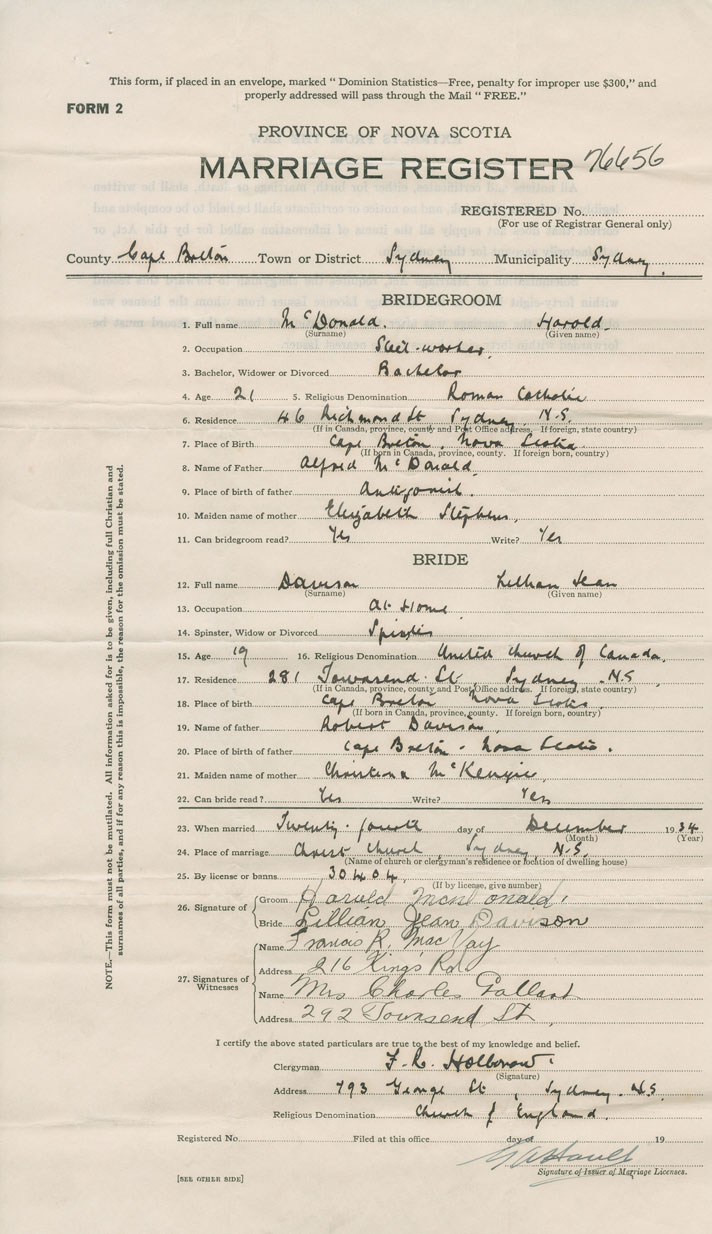 This form, if placed in an envelope, marked " Dominion Statistics—Free, penalty for improper use $300," and
properly addressed will pass through the Mail " FREE."
FORM 2
PROVINCE OF NOVA SCOTIA
MARRIAGE REGISTER 76656
REGISTERED No.
(For use of Registrar General only)
County Cape Breton Town or District Sydney Municipality Sydney
BRIDEGROOM
1. Full name McDonald. Harold.
(Surname) (Given name)
2. Occupation Steel-worker
3. Bachelor, Widower or Divorced Bachelor
4. Age 21 5. Religious Denomination Roman Catholic
6. Residence 46 Richmond St Sydney, N.S.
(If in Canada, province, county and Post Office address. If foreign, state country)
7. Place of Birth Cape Breton, Nova Scotia
(If born in Canada, province, county. If foreign born, country)
8. Name of Father Alfred McDonald
9. Place of birth of father Antigonish.
10. Maiden name of mother Elizabeth Stephens,
11. Can bridegroom read? Yes Write? Yes
BRIDE
12. Full name Davison Lillian Jean
(Surname) (Given name)
13. Occupation At Home
14. Spinster, Widow or Divorced Spinster
15. Age 19 16. Religious Denomination United Church of Canada,
17. Residence 281 Townsend St, Sydney, N.S,
(If in Canada, province, county and Post Office address. If foreign, state country)
18. Place of birth Cape Breton Nova Scotia,
(If born in Canada, province, county. If foreign born, country)
19. Name of father Robert Davison,
20. Place of birth of father Cape Breton - Nova Scotia.
21. Maiden name of mother Christina McKenzie,
22. Can bride read? Yes Write? Yes
23. When married Twenty-fourth day of December 1934
(Month) (Year)
24. Place of marriage Christ Church, Sydney N.S.
(Name of church or clergyman's residence or location of dwelling house)
25. By license or banns 30404.
(If by license, give number)
26. Signature of
Groom Harold McDonald.
Bride Lillian Jean Davison
27. Signatures of Witnesses
Name Francis R. MacVay
Address 216 Kings Rd
Name Mrs Charles Gallant
Address 292 Townsend St.,
I certify the above stated particulars are true to the best of my knowledge and belief.
Clergyman F. R.
(Signature)
Address 793 George St, Sydney. N.S.
Religious Denomination Church of England.
Registered No. Filed at this office day of 19
Signature of Issuer of Marriage Licenses.
[SEE OTHER SIDE]
NOTE.—This form must not be mutilated. All information asked for is to be given, including full Christian and
surnames of all parties, and if for any reason this is impossible, the reason for the omission must be stated.